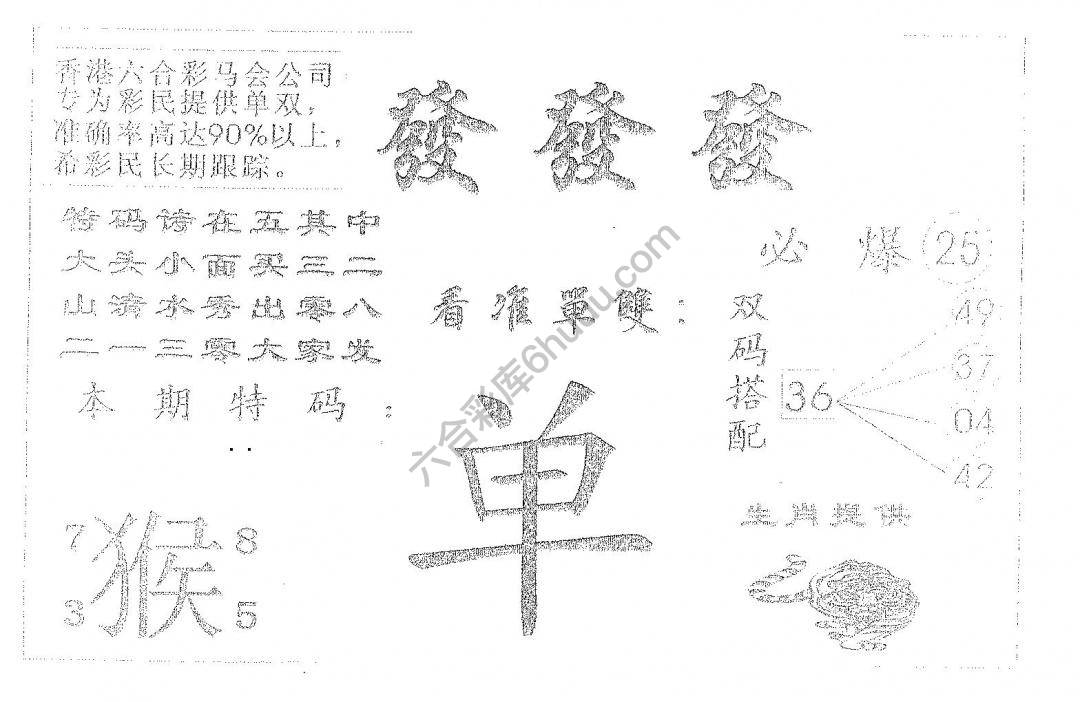 香港六合彩马会公司
专为彩民提供单双,
准确率高达90%以上,
希彩民长期跟踪。
發發發
特码诗在五其中
大头小面买三二
山清水秀出零八
二一三零大家发
本期特码:
看准單雙:
单
必爆25
双码搭配
36
49
37
04
42
生肖提供
7 8
猴
3 5
六合彩库6hudu.com